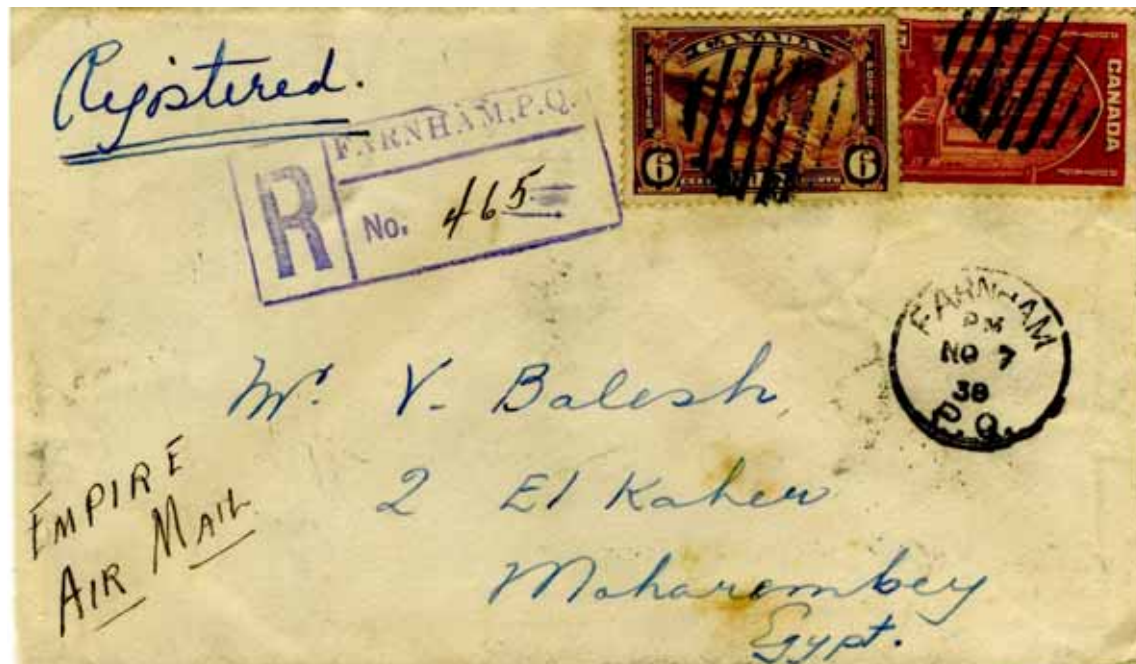 Registered.
FARNHAM, P.Q.
R
No. 465
CANADA
POSTES
POSTAGE
6 6
CANADA
FARNHAM
PM
NO 7
38
P.Q.
Mr. V. Balesh,
2 El Kaher
Moharembey
Egypt.
EMPIRE
AIR MAIL